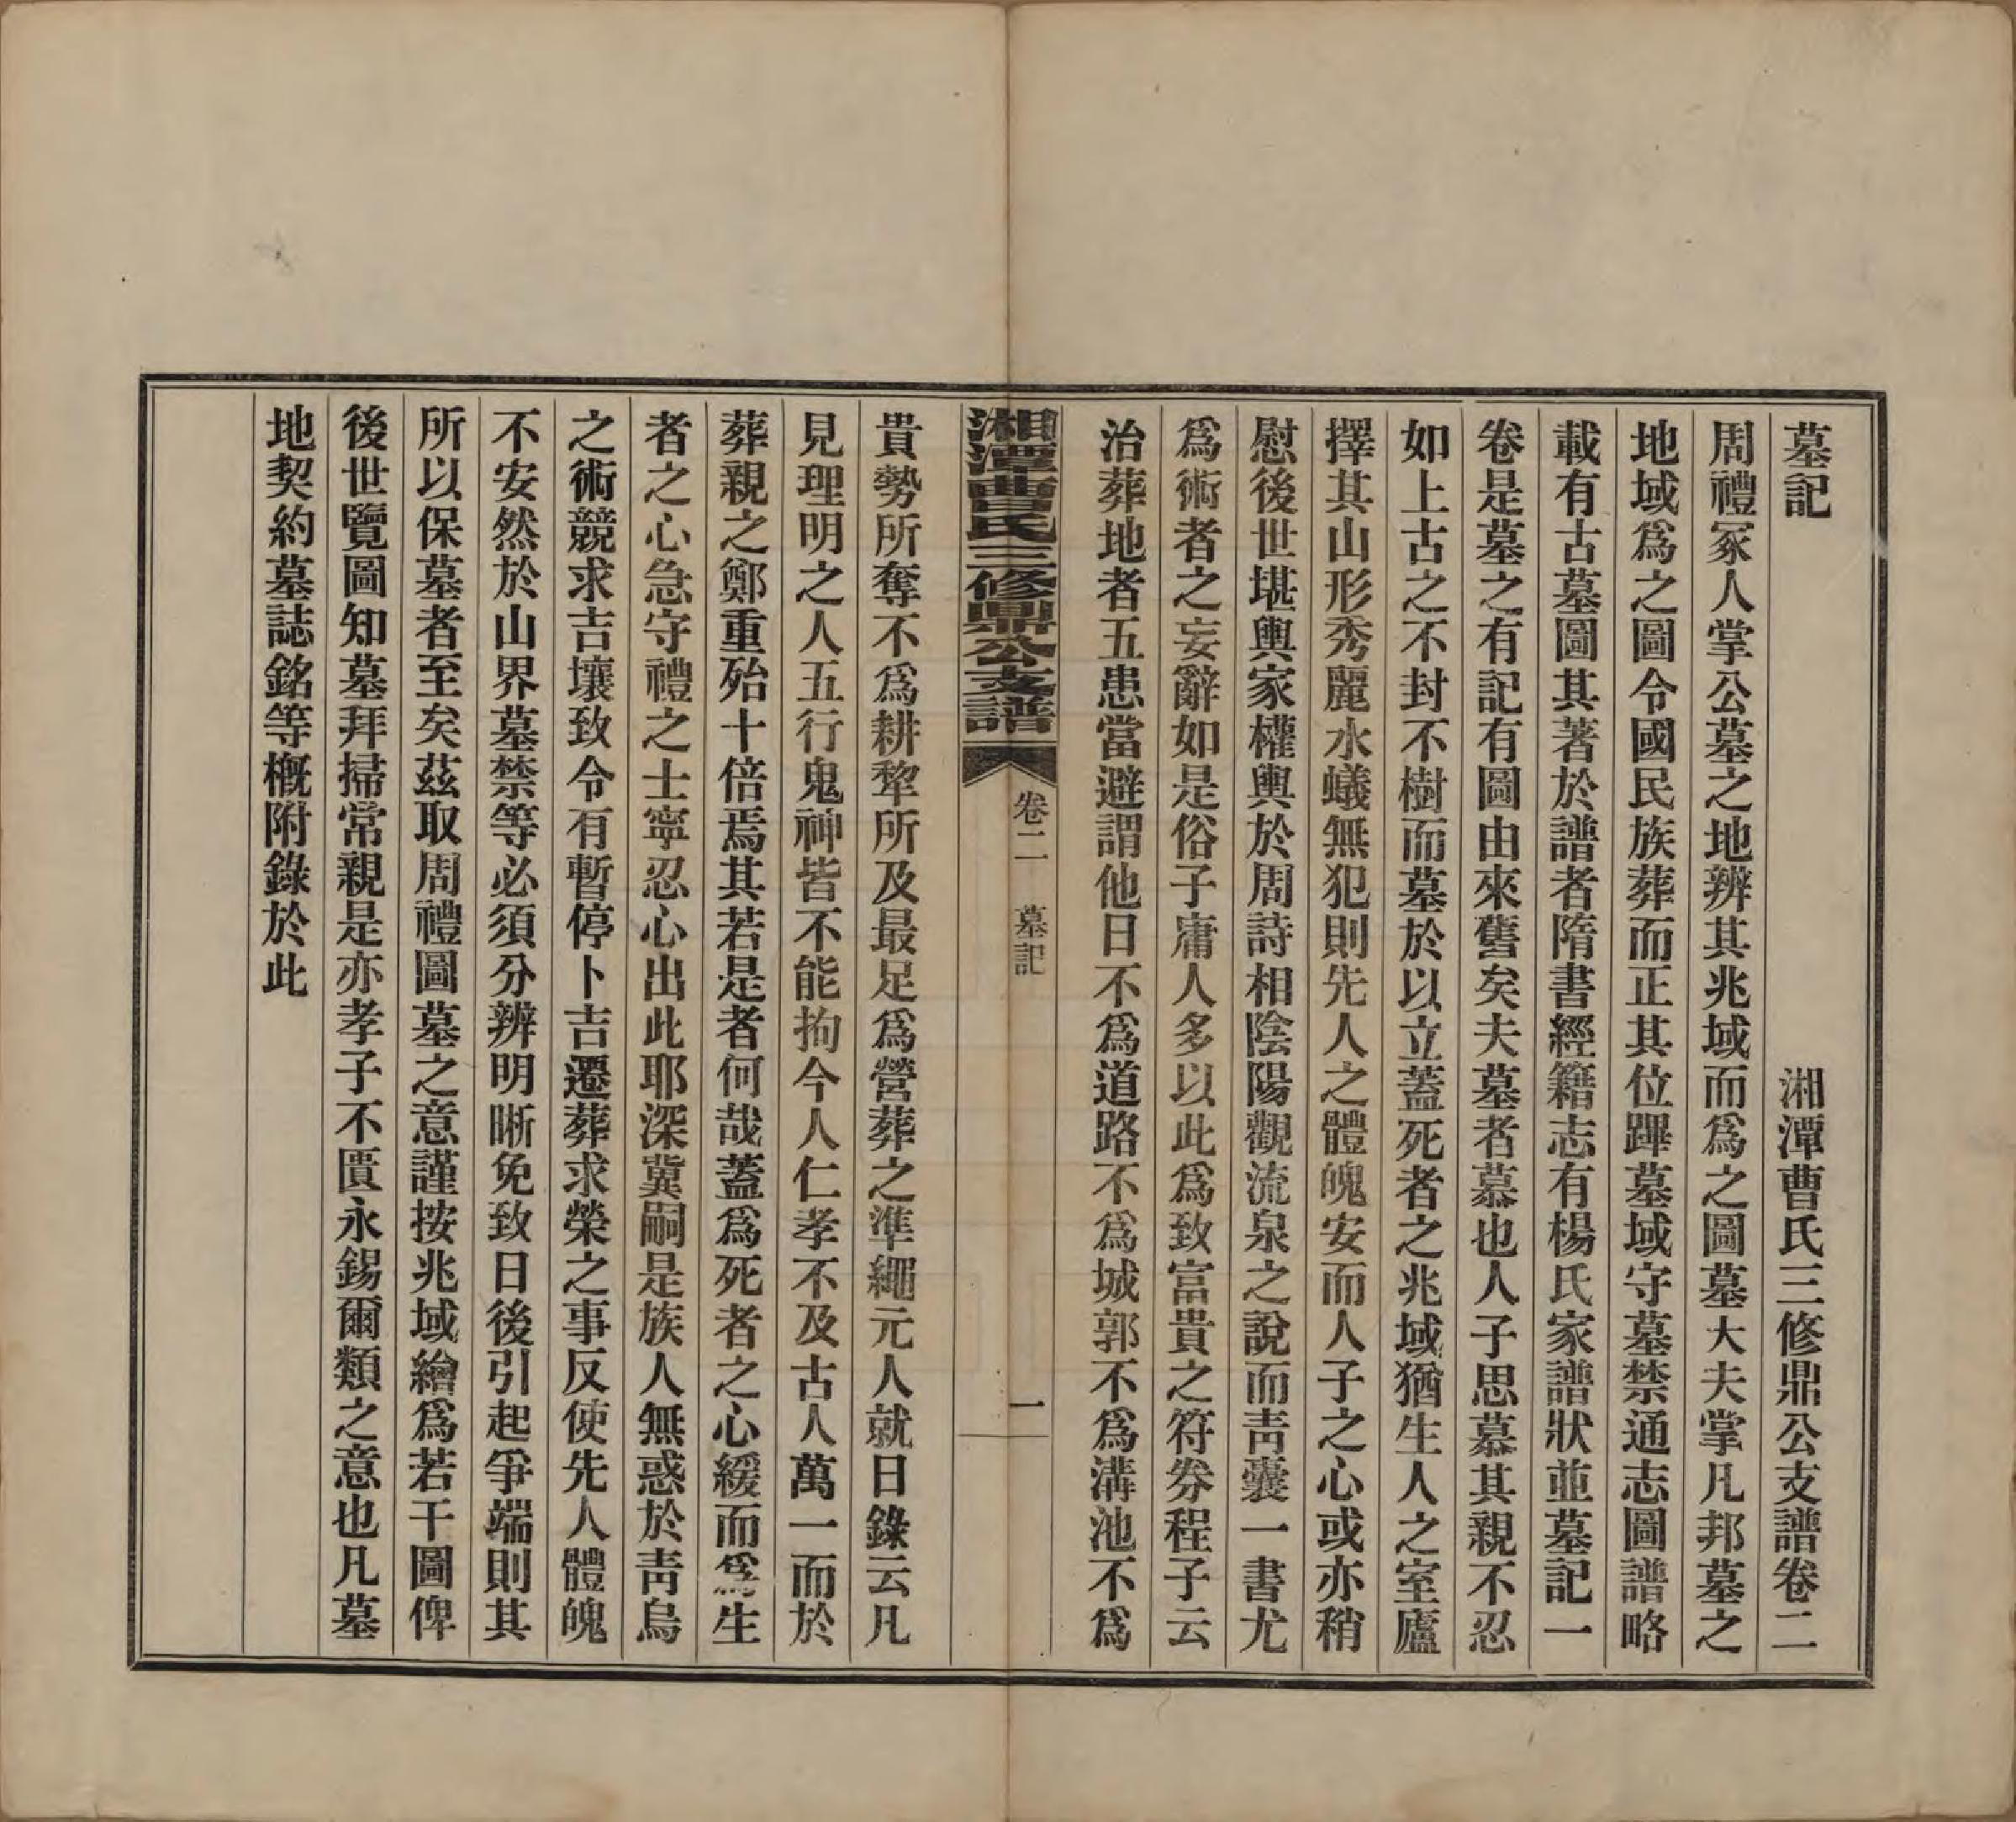 墓記　湘潭曹氏三修鼎公支譜卷二
周禮冢人掌公墓之地辨其兆域而爲之圖墓大夫掌凡邦墓之
地域爲之圖令國民族葬而正其位蹕墓域守墓禁通志圖譜略
載有古墓圖其著於譜者隋書經籍志有楊氏家譜狀並墓記一
卷是墓之有記有圖由來舊矣夫墓者慕也人子思慕其親不忍
如上古之不封不樹而墓於以立蓋死者之兆域猶生人之室廬
擇其山形秀麗水蟻無犯則先人之體魄安而人子之心或亦稍
慰後世堪輿家權輿於周詩相陰陽觀流泉之說而靑囊一書尤
爲術者之妄辭如是俗子庸人多以此爲致富貴之符券程子云
治葬地者五患當避謂他日不爲道路不爲城郭不爲溝池不爲
湘潭曹氏三修鼎公支譜　卷二　墓記　一
貴勢所奪不爲耕犂所及最足爲營葬之準繩元人就日錄云凡
見理明之人五行鬼神皆不能拘今人仁孝不及古人萬一而於
葬親之鄭重殆十倍焉其若是者何哉蓋爲死者之心緩而爲生
者之心急守禮之士寧忍心出此耶深冀嗣是族人無惑於靑烏
之術競求吉壤致令有暫停卜吉遷葬求榮之事反使先人體魄
不安然於山界墓禁等必須分辨明晰免致日後引起爭端則其
所以保墓者至矣茲取周禮圖墓之意謹按兆域繪爲若干圖俾
後世覽圖知墓拜掃常親是亦孝子不匱永錫爾類之意也凡墓
地契約墓誌銘等槪附錄於此